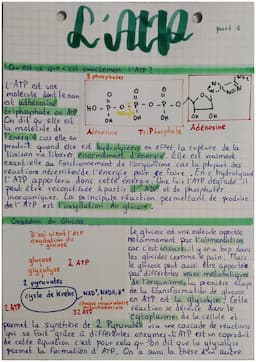 L'ATP
Qu'est ce que c'est exactement l'ATP?
3 phosphates
L'ATP est une
molécule dont le nom
est adénosine
triphosphate ou ATP
On dit qu'elle est
la molécule de
l'énergie car elle en
HO - P - O - P - O - P - O
OH OH OH
Adénosine TriPhosphate
Adenosine
produit quand elle est hydrolysée en effet la rupture de la
liaison va libérer énormément d'énergie. Elle est vraiment
essentielle au fonctionnement de l'organisme car la plupart des
réactions nécessitent de l'énergie pour se faire. En s'hydrolysant
l'ATP apportera donc cette énergie. Une fois l'ATP dégradé il
peut être reconstituée à partir d'ADP et de phosphates
inorganiques. La principale réaction permettant de produire
de l'ATP est l'oxydation du glucose.
Oxydation du Glucose
D'où vient l'ATP
oxydation du
glucose
glucose
glycolyse
2 ATP
2 pyruvates
cycle de Krebs
NAD⁺, NADH, H⁺
chaque respiratoire
mitochondriale
2 ATP
32 ATP
Le glucose est une molécule apportée
notamment par l'alimentation
car c'est un sucre, il y en a trop dans
les glucides comme le pain. Mais
le glucose peut aussi être apporté
par différentes voies métaboliques
de l'organisme. La première étape
de la transformation du glucose
en ATP est la glycolyse! Cette
réaction se déroule dans le
cytoplasme de la cellule et
permet la synthèse de 2 Pyruvates via une cascade de réactions
qui se fait grâce à différentes enzymes. L'ATP est un coproduit
de cette équation c'est pour cela qu'on dit que la glycolyse
permet la formation d'ATP. On a aussi la thèse